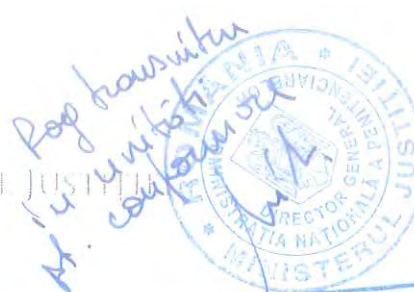 Rog transmitere
în unități
pt. conformare
ROMÂNIA * MINISTERUL JUSTIȚIEI *
ADMINISTRAȚIA NAȚIONALĂ A PENITENCIARELOR
DIRECTOR GENERAL